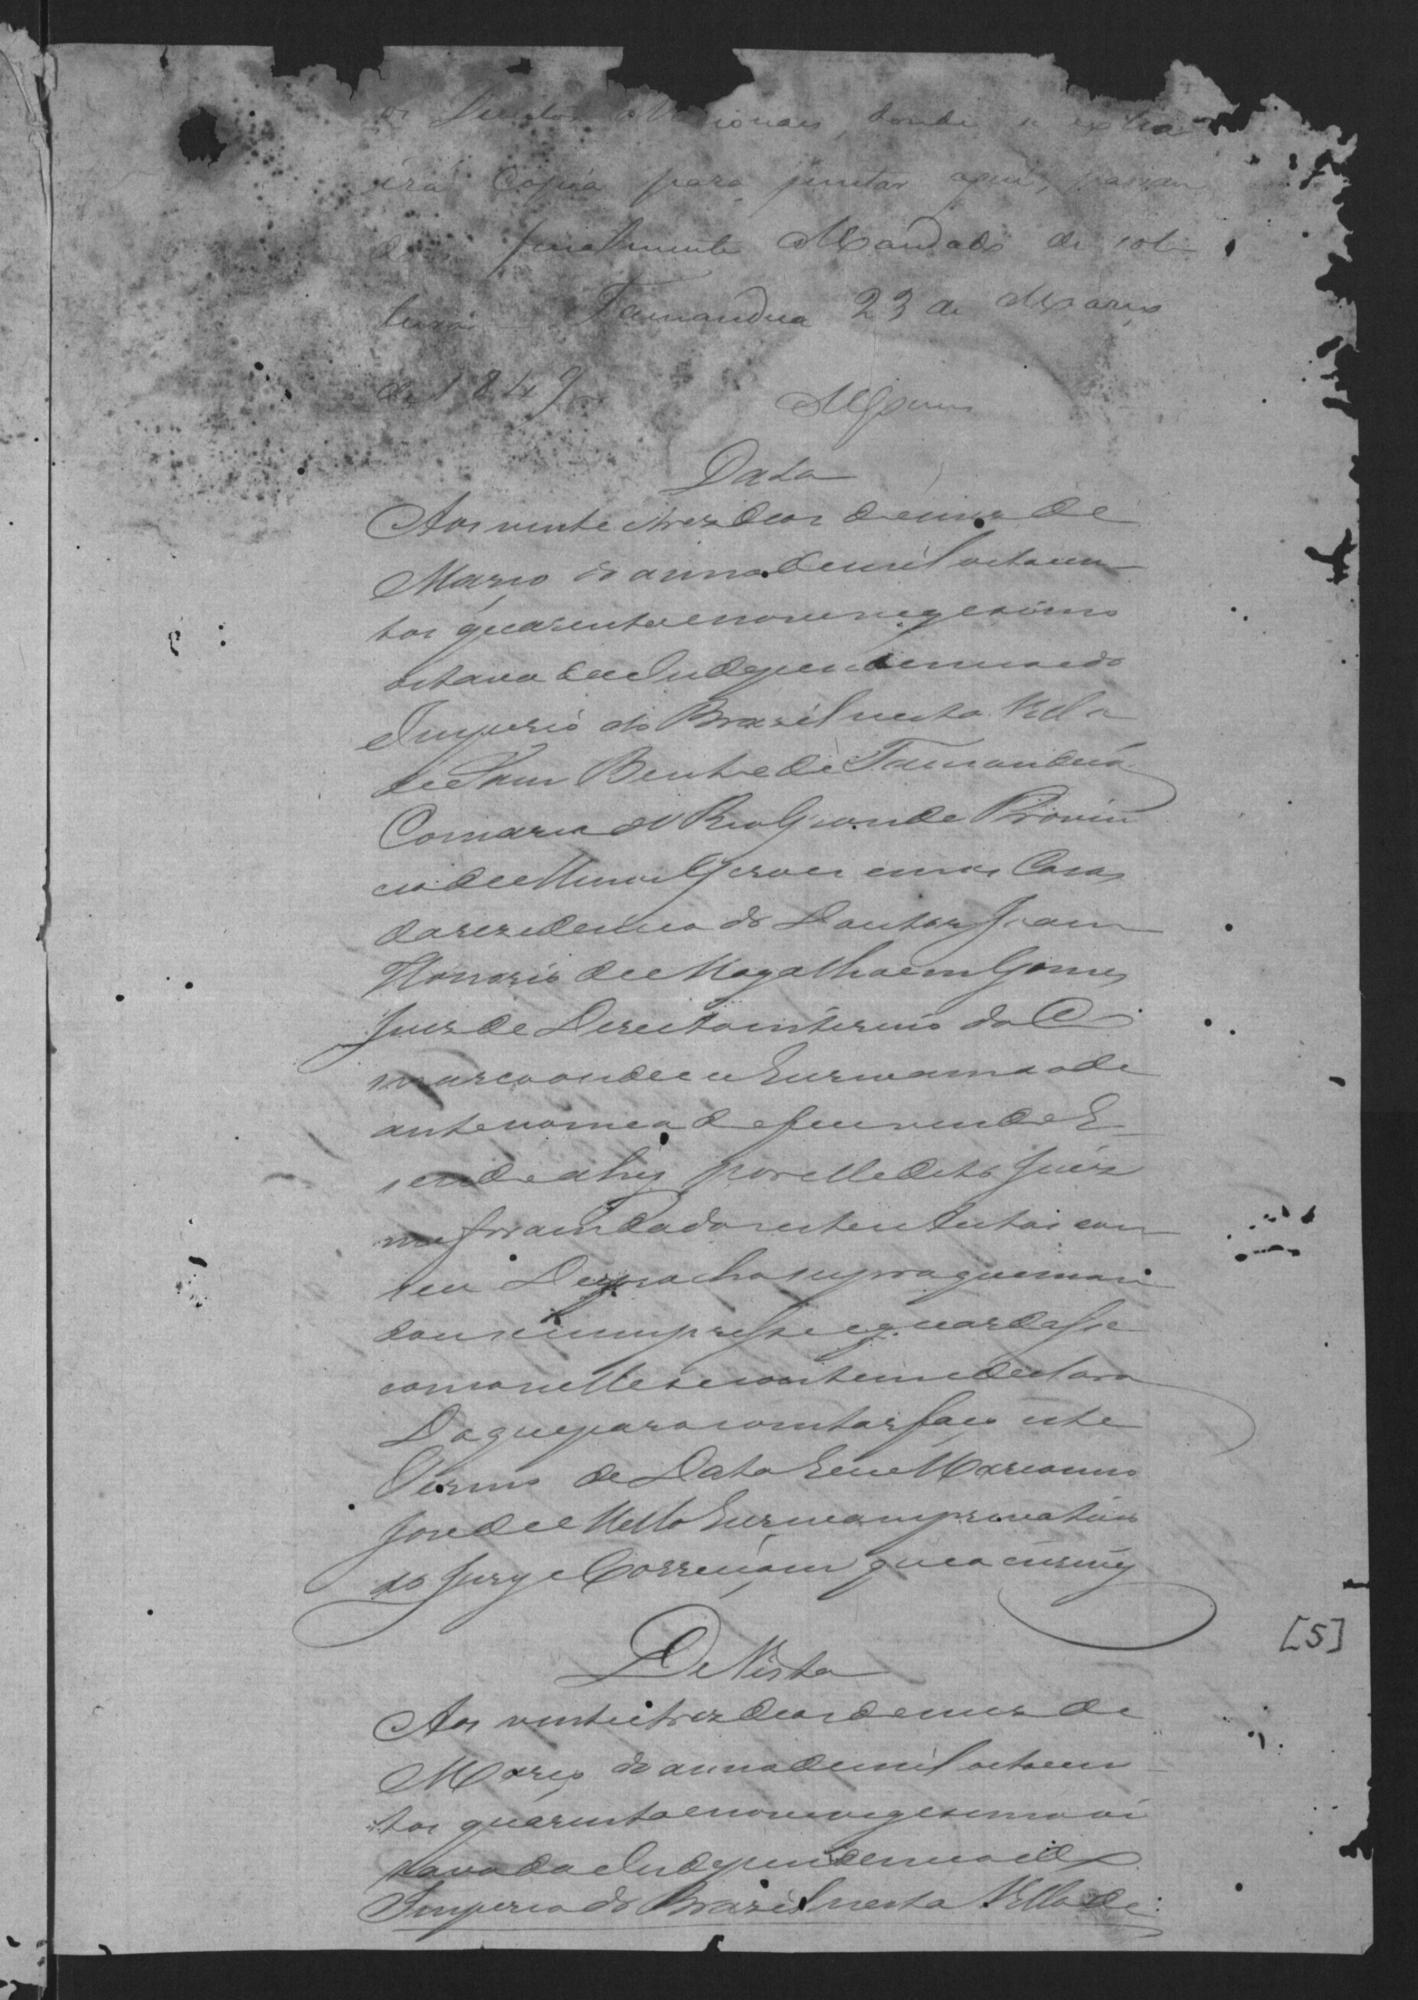 os Direitos Nacionaes, donde se extra
irá Copia para juntar aqui, passan
do finalmente Mandado de sol
tura. Tamandua 23 de Março
de 1849.
MGomes
Data
Aos vinte e tres dias do mes de
Março do anno de mil oitocen
tos quarenta e nove vigesimo
oitavo da Independencia e do
Imperio do Brazil nesta Villa
de Sam Bento de Tamanduá
Comarca do Rio Grande Provin
cia de Minas Geraes em as Casas
da rezidencia do Doutor Joam
Honorio de Magalhaens Gomes
Juis de Direito interino da Co
marca onde eu Escrivam ao di
ante nomeado fui vindo E
sendo ahy por elle dito Juis
me foram dados estes Autos com
seu Despacho supra que man
dou se cumprisse e guardasse
como nelle se contem e declara
Do que para constar faço este
Termo de Data Eu Marianno
Jose de Mello Escrivam privativo
do Jury e Correiçam que a escrevy
De Vista
Aos vinte e tres dias do mes de
Março do anno de mil oitocen
tos quarenta e nove vigesimo oi
tavo da Independencia e do
Imperio do Brazil nesta Villa de
[5]